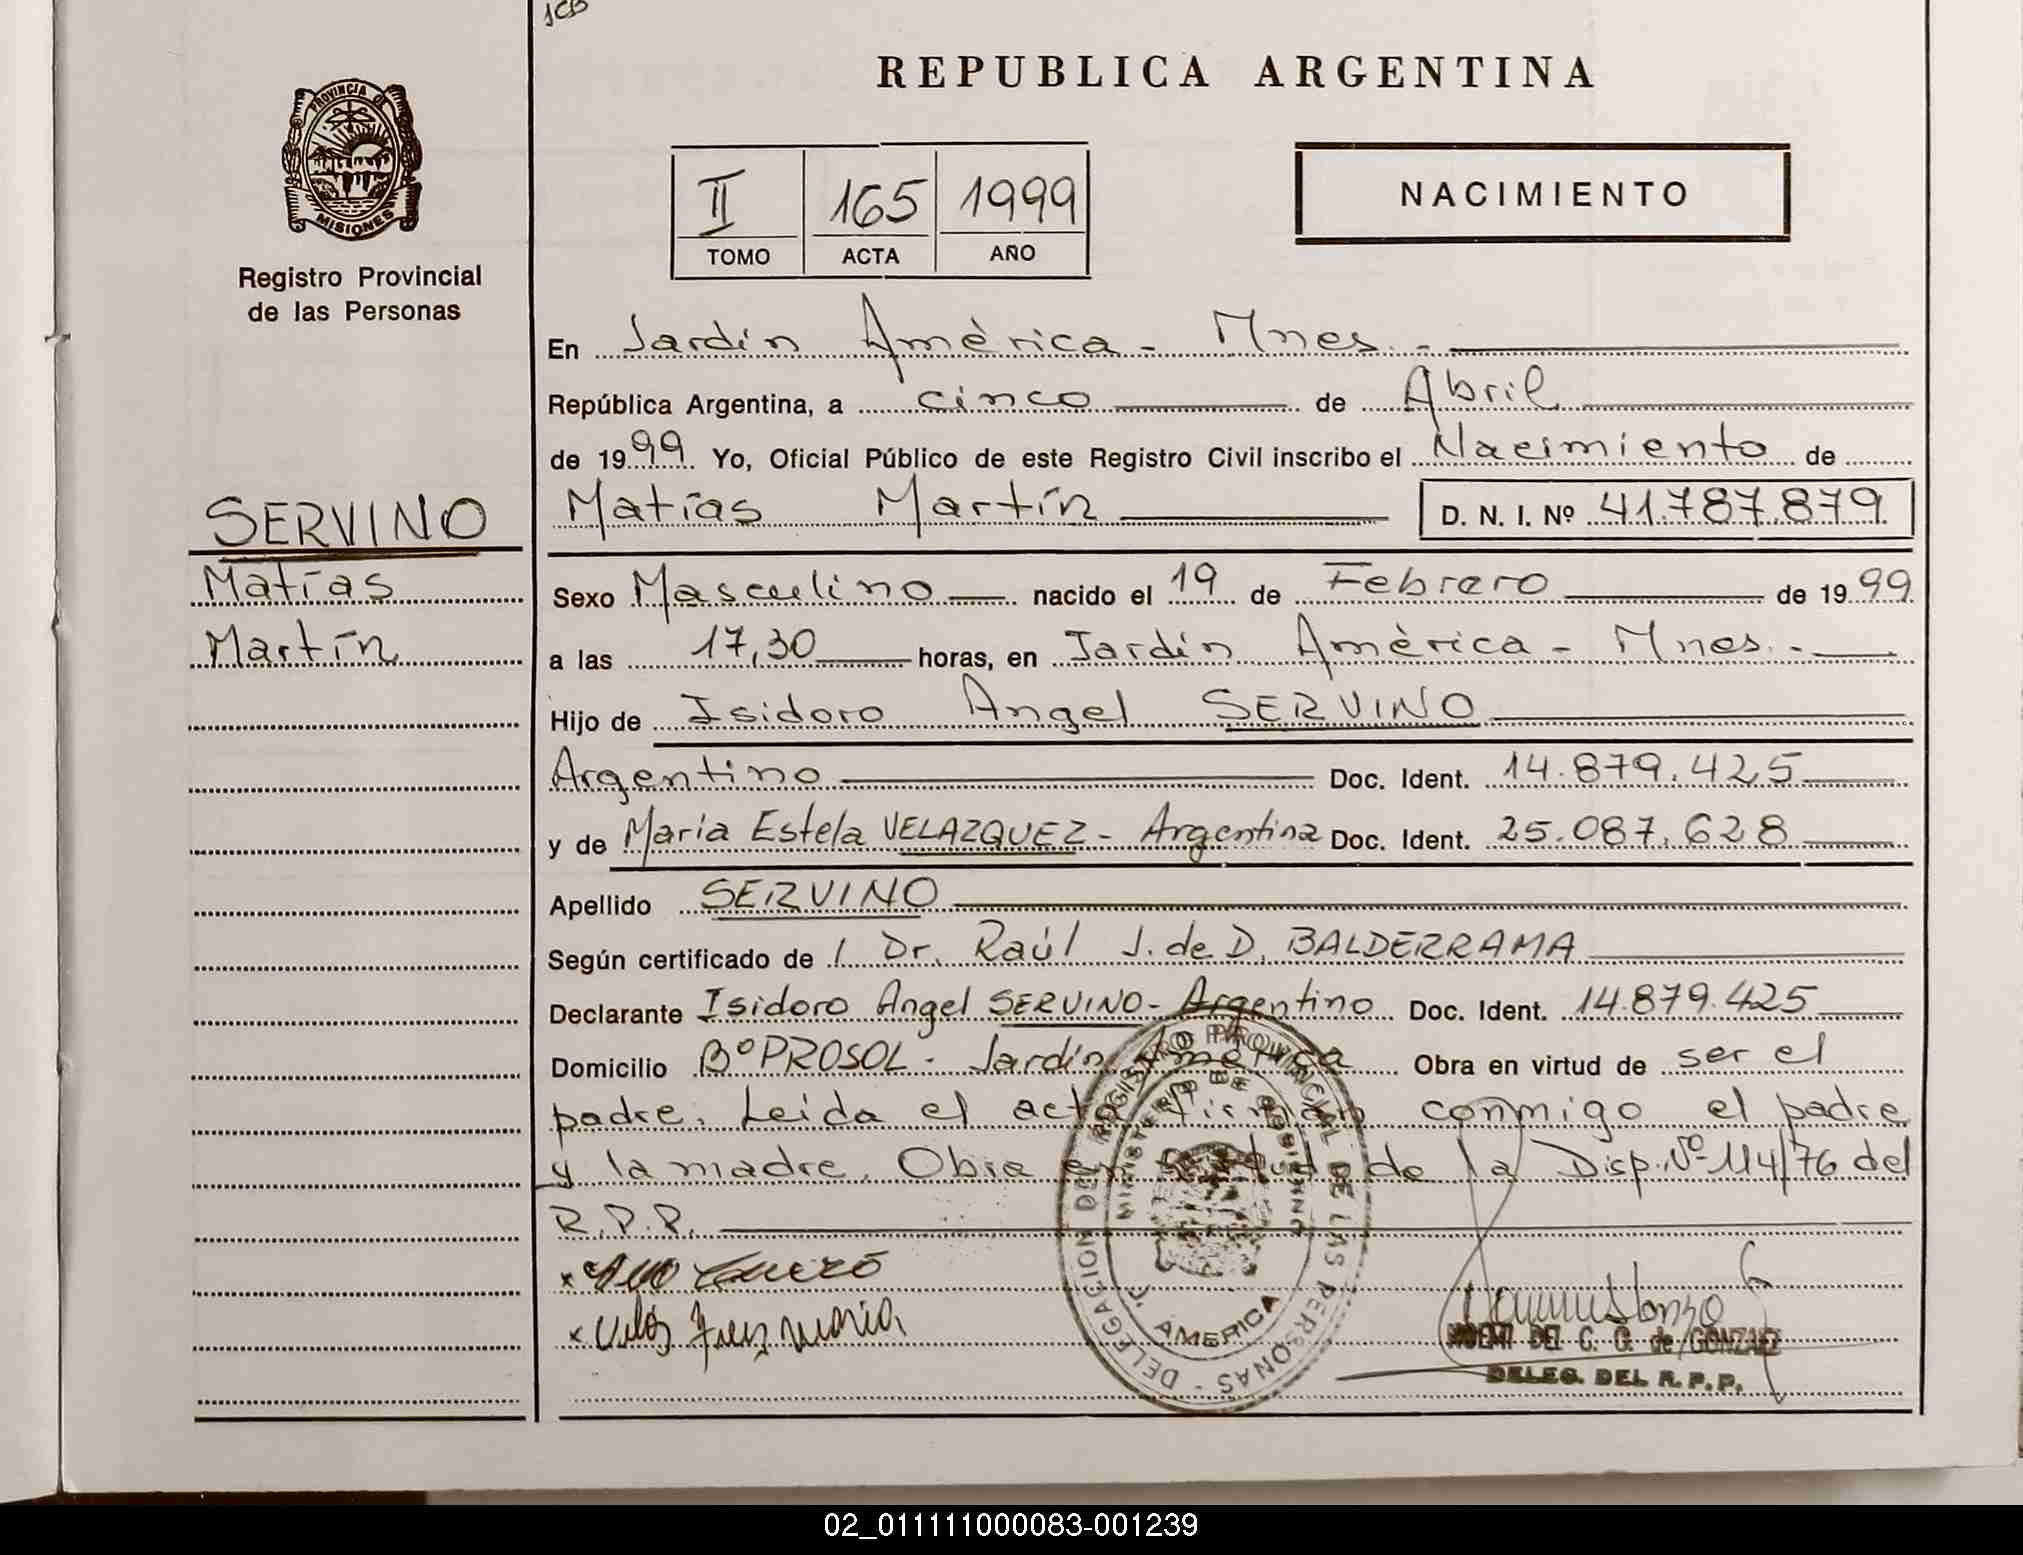 JCB
REPUBLICA ARGENTINA
PROVINCIA DE
MISIONES
Registro Provincial
de las Personas
II 165 1999
TOMO ACTA AÑO
NACIMIENTO
En Jardín América - Mnes. -
República Argentina, a cinco de Abril
de 1999 Yo, Oficial Público de este Registro Civil inscribo el Nacimiento de
SERVINO
Matías Martín D. N. I. Nº 41.787.879
Matías
Sexo Masculino nacido el 19 de Febrero de 1999
Martín
a las 17,30 horas, en Jardín América - Mnes. -
Hijo de Isidoro Angel SERVINO
Argentino Doc. Ident. 14.879.425
y de María Estela VELAZQUEZ - Argentina Doc. Ident. 25.087.628
Apellido SERVINO
Según certificado de / Dr. Raúl J. de D. BALDERRAMA
Declarante Isidoro Angel SERVINO - Argentino Doc. Ident. 14.879.425
Domicilio Bº PROSOL - Jardín América Obra en virtud de ser el
padre. Leida el acta firman conmigo el padre
y la madre. Obra en virtud de la Disp. Nº 114/76 del
R.P.P.
DELEGACION DEL REGISTRO PROVINCIAL DE LAS PERSONAS
MINISTERIO DE GOBIERNO
AMERICA
DEL C. G. de GONZALEZ
DELEG. DEL R. P. P.
02_011111000083-001239